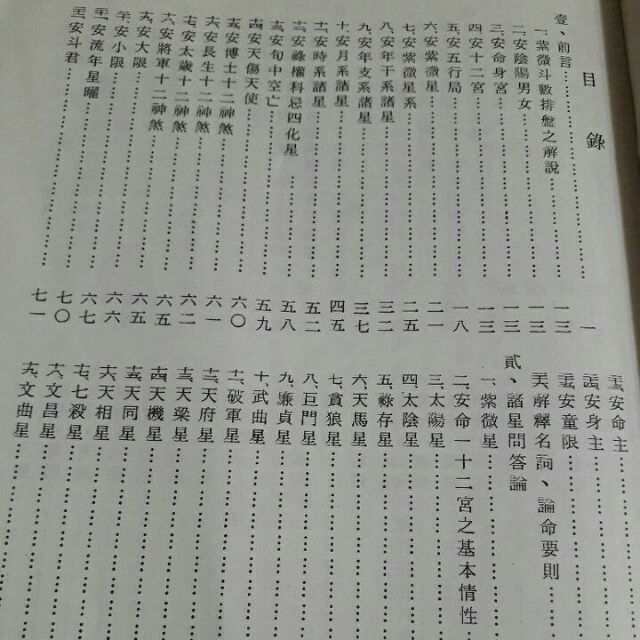 目錄
壹、前言……………一
一、紫微斗數排盤之解說……………一三
二、安陰陽男女……………一三
三、安命身宮……………一三
四、安十二宮……………一三
五、安五行局……………一八
六、安紫微星……………二一
七、安紫微星系……………二五
八、安年干系諸星……………三二
九、安年支系諸星……………三七
十、安月系諸星……………四五
十一、安時系諸星……………五二
十二、安祿權科忌四化星……………五八
十三、安旬中空亡……………五九
十四、安天傷天使……………六〇
十五、安博士十二神煞……………六一
十六、安長生十二神煞……………六二
十七、安太歲十二神煞……………六五
十八、安將軍十二神煞……………六五
十九、安大限……………六六
二十、安小限……………六七
二一、安流年星曜……………七〇
二二、安斗君……………七一
二三、安命主……………
二四、安身主……………
二五、安童限……………
二六、解釋名詞、論命要則……………
貳、諸星問答論
一、紫微星……………
二、安命一十二宮之基本情性……………
三、太陽星……………
四、太陰星……………
五、祿存星……………
六、天馬星……………
七、貪狼星……………
八、巨門星……………
九、廉貞星……………
十、武曲星……………
十一、破軍星……………
十二、天府星……………
十三、天梁星……………
十四、天機星……………
十五、天同星……………
十六、天相星……………
十七、七殺星……………
十八、文昌星……………
十九、文曲星……………